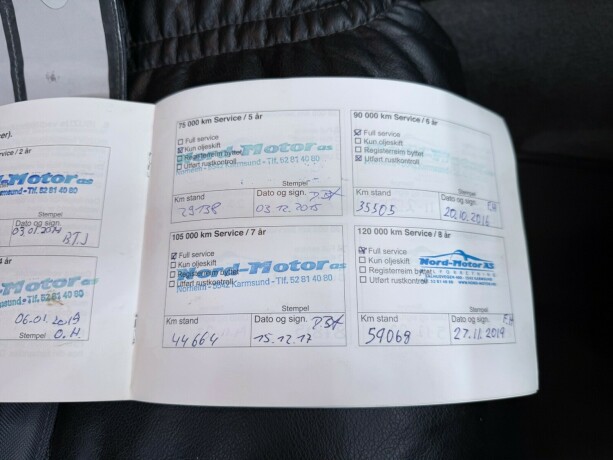 er).
vice / 2 år
d-Motor as
sund - Tlf. 52 81 40 80
Stempel
Dato og sign.
03.01.2014
BTJ
4 år
Motor as
sund - Tlf. 52 81 40 80
06-01. 2019
Stempel
O.H.
75 000 km Service / 5 år
Full service
Kun oljeskift
Registerreim byttet
Utført rustkontroll
Nord-Motor as
Norheim - 5542 Karmsund - Tlf. 52 81 40 80
Stempel
Km stand
Dato og sign.
29138
03.12.2015
90 000 km Service / 6 år
Full service
Kun oljeskift
Registerreim byttet
Utført rustkontroll
Nord-Motor as
Karmsund - Tlf. 52 81 40 80
Stempel
Km stand
Dato og sign.
35505
20.10.2016
105 000 km Service / 7 år
Full service
Kun oljeskift
Registerreim byttet
Utført rustkontroll
Nord-Motor as
Norheim - 5542 Karmsund - Tlf. 52 81 40 80
Stempel
Km stand
Dato og sign.
44664
15.12.17
120 000 km Service / 8 år
Full service
Kun oljeskift
Registerreim byttet
Utført rustkontroll
Nord-Motor AS
Stempel
Km stand
Dato og sign.
E.H
59068
27.11.2019